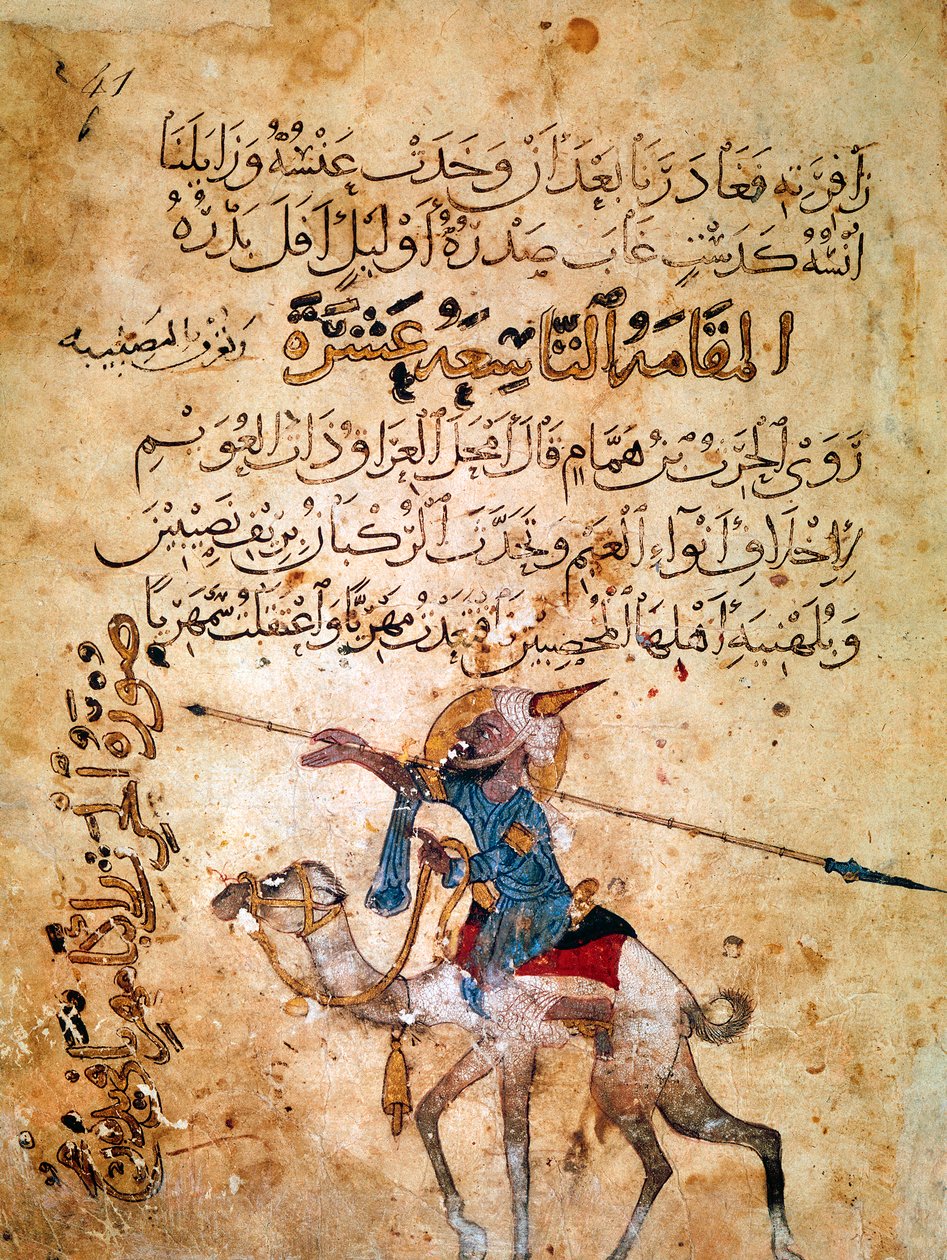 41
6
زَافِرَتِهِ فَغَادَرَنَا بَعْدَ أَنْ وَخَدَتْ عَنْسُهُ وَزَايَلَنَا
أُنْسُهُ كَدَسْتٍ غَابَ صَدْرُهُ أَوْ لَيْلٍ أَفَلَ بَدْرُهُ
المَقَامَهُ التَّاسِعَهُ عَشَرَةَ
وتعرف بالنصيبيه
رَوَى الْحَرثُ بْنُ هَمَّامٍ قَالَ أَمْحَلَ الْعِرَاقُ ذَاتَ العُوَيْمِ
لِإِخْلَافِ أَنْوَآءِ الْغَيْمِ وَتَحَدَّثَ الرُّكْبَانُ بِرِيفِ نَصِيبِينَ
وَبُلَهْنِيَةِ أَهْلِهَا الْمُخْصِبِينَ فَاقْتَعَدْتُ مَهْرِيًّا وَاعْتَقَلْتُ سَمْهَرِيًّا
صورة الحرث راكبا مهريا